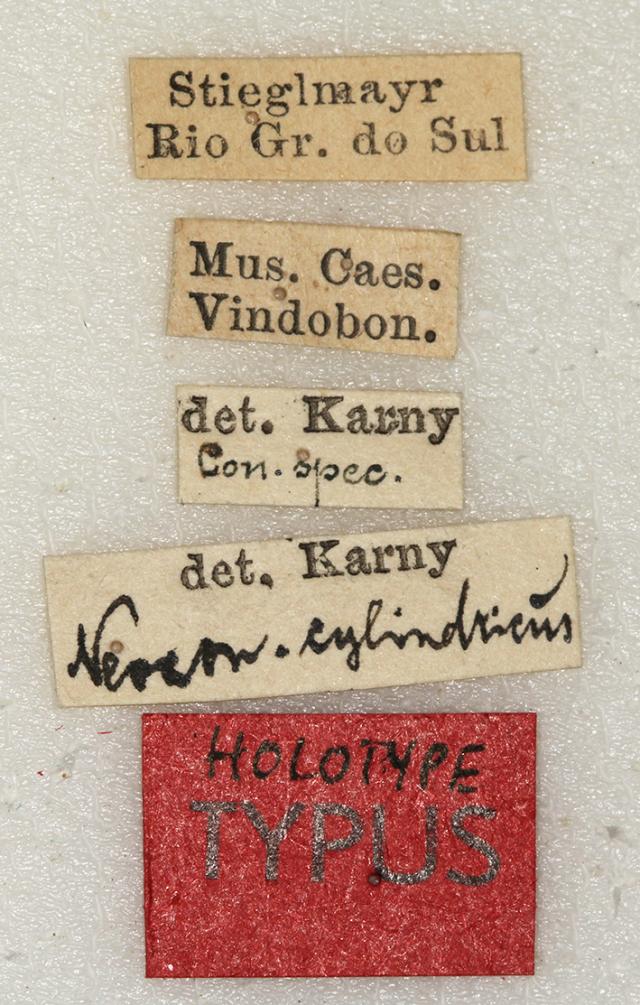 Stieglmayr
Rio Gr. do Sul
Mus. Caes.
Vindobon.
det. Karny
Con. spec.
det. Karny
Neocon. cylindricus
HOLOTYPE
TYPUS